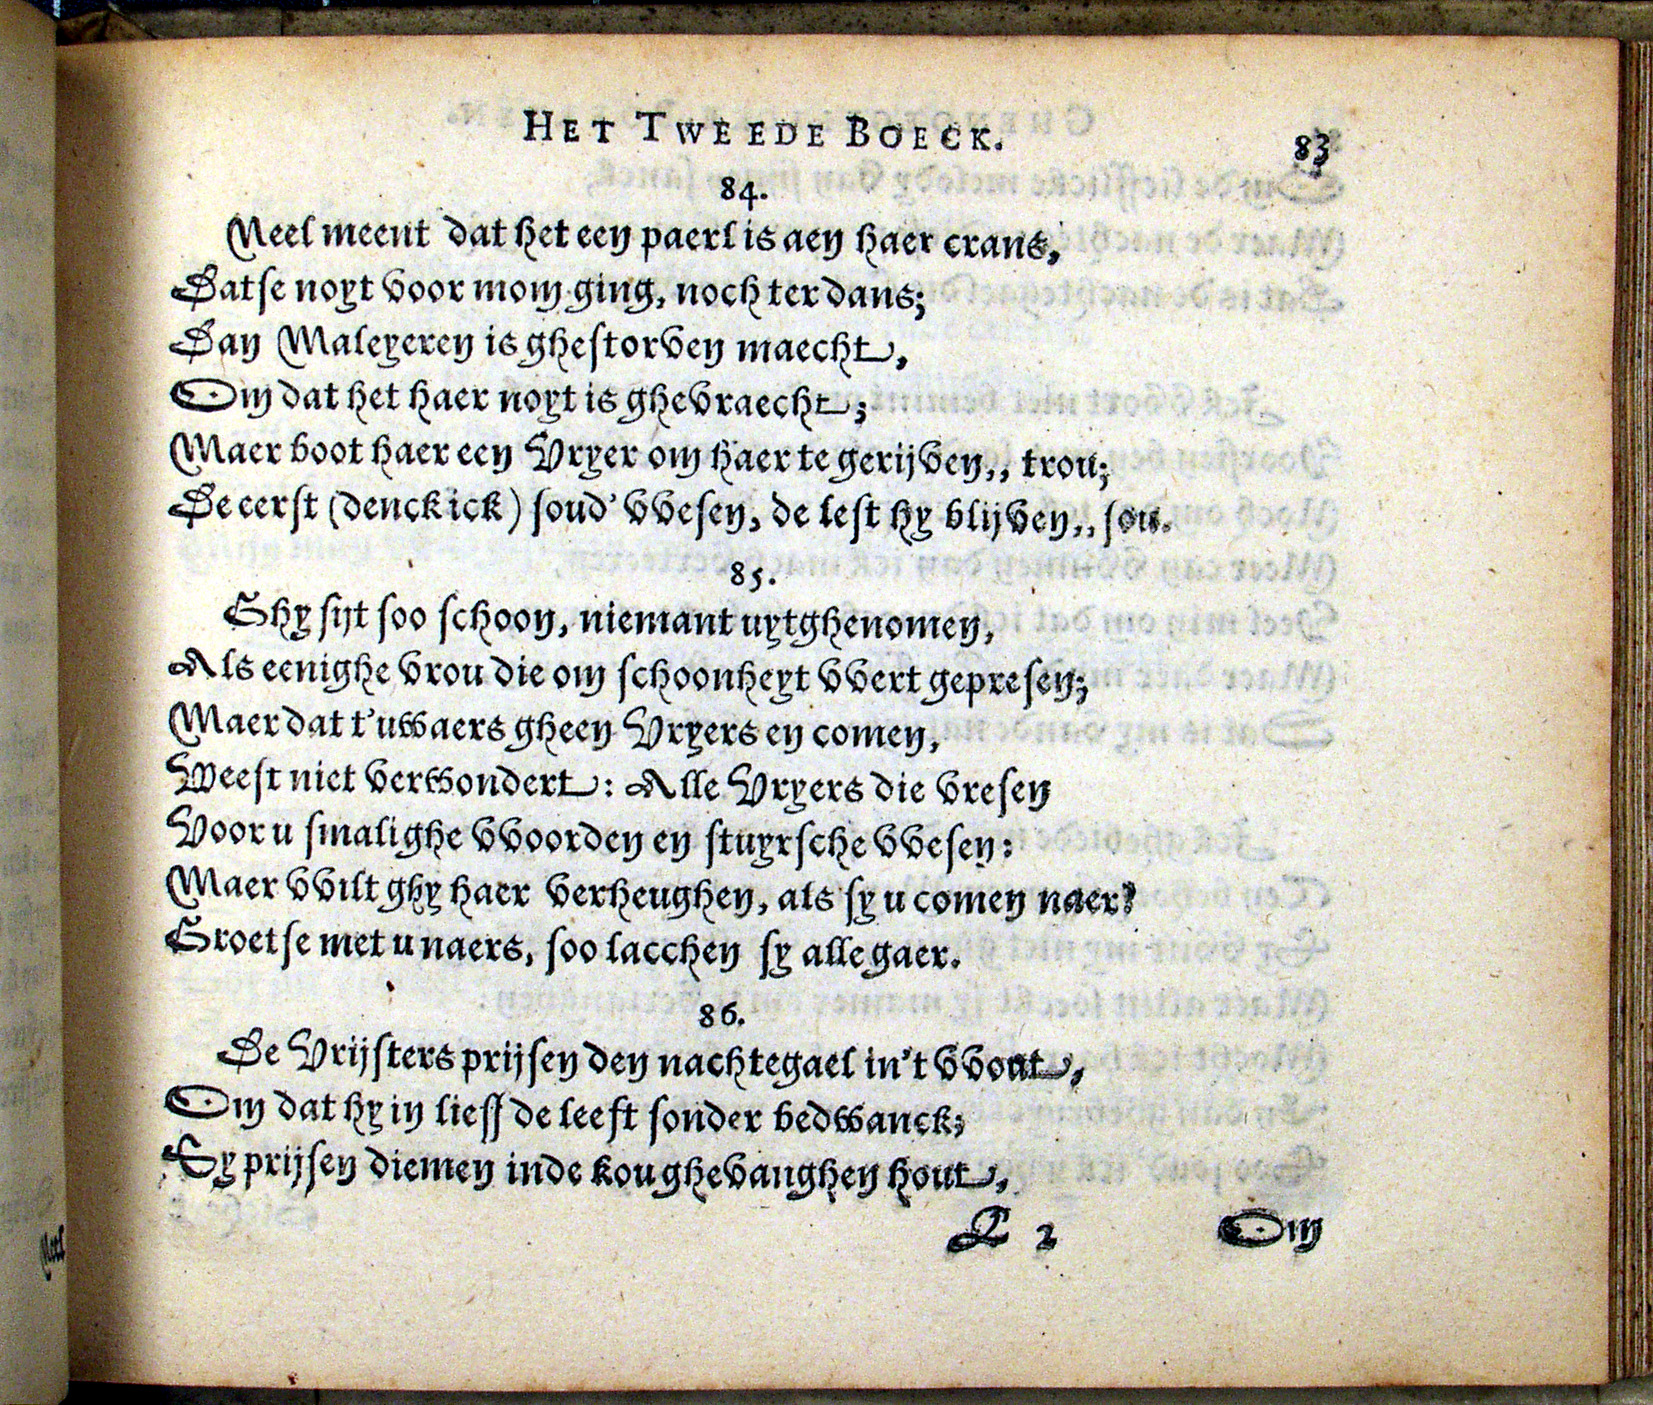 HET TWEEDE BOECK. 83
84.
Neel meent dat het een paerl is aen haer crans,
Datse noyt voor mom ging, noch ter dans;
Dan Maleyeren is ghestorven maecht,
Om dat het haer noyt is ghevraecht;
Maer boot haer een Vryer om haer te gerijven,, trou;
De eerst (denck ick) soud' vvesen, de lest hy blijven,, sou.
85.
Ghy sijt soo schoon, niemant uytghenomen,
Als eenighe vrou die om schoonheyt vvert gepresen;
Maer dat t'uwaers gheen Vryers en comen,
Weest niet verwondert: Alle Vryers die vresen
Voor u smalighe vvoorden en stuyrsche vvesen:
Maer vvilt ghy haer verheughen, als sy u comen naer?
Groetse met u naers, soo lacchen sy alle gaer.
86.
De Vrijsters prijsen den nachtegael in't vvout,
Om dat hy in lieff de leeft sonder bedwanck;
Sy prijsen diemen inde kou ghevanghen hout,
2 Om